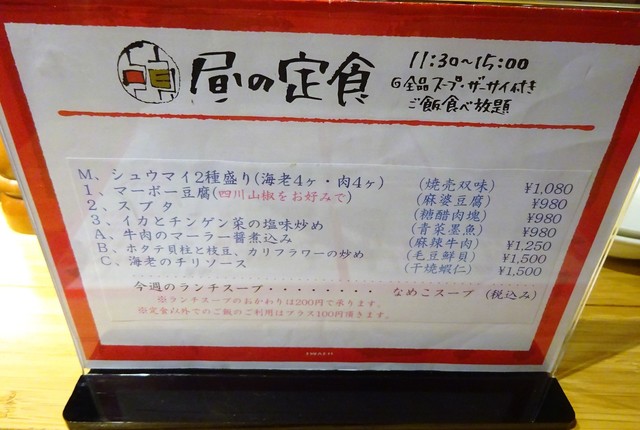 昼の定食
11:30〜15:00
全品スープ・ザーサイ付き
ご飯食べ放題
M、シュウマイ2種盛り(海老4ヶ・肉4ヶ) (焼売双味) ¥1,080
1、マーボー豆腐(四川山椒をお好みで) (麻婆豆腐) ¥980
2、スブタ (糖醋肉塊) ¥980
3、イカとチンゲン菜の塩味炒め (青菜墨魚) ¥980
A、牛肉のマーラー醤煮込み (麻辣牛肉) ¥1,250
B、ホタテ貝柱と枝豆、カリフラワーの炒め (毛豆鮮貝) ¥1,500
C、海老のチリソース (干焼蝦仁) ¥1,500
今週のランチスープ・・・・・・・・ なめこスープ (税込み)
※ランチスープのおかわりは200円で承ります。
※定食以外でのご飯のご利用はプラス100円頂きます。